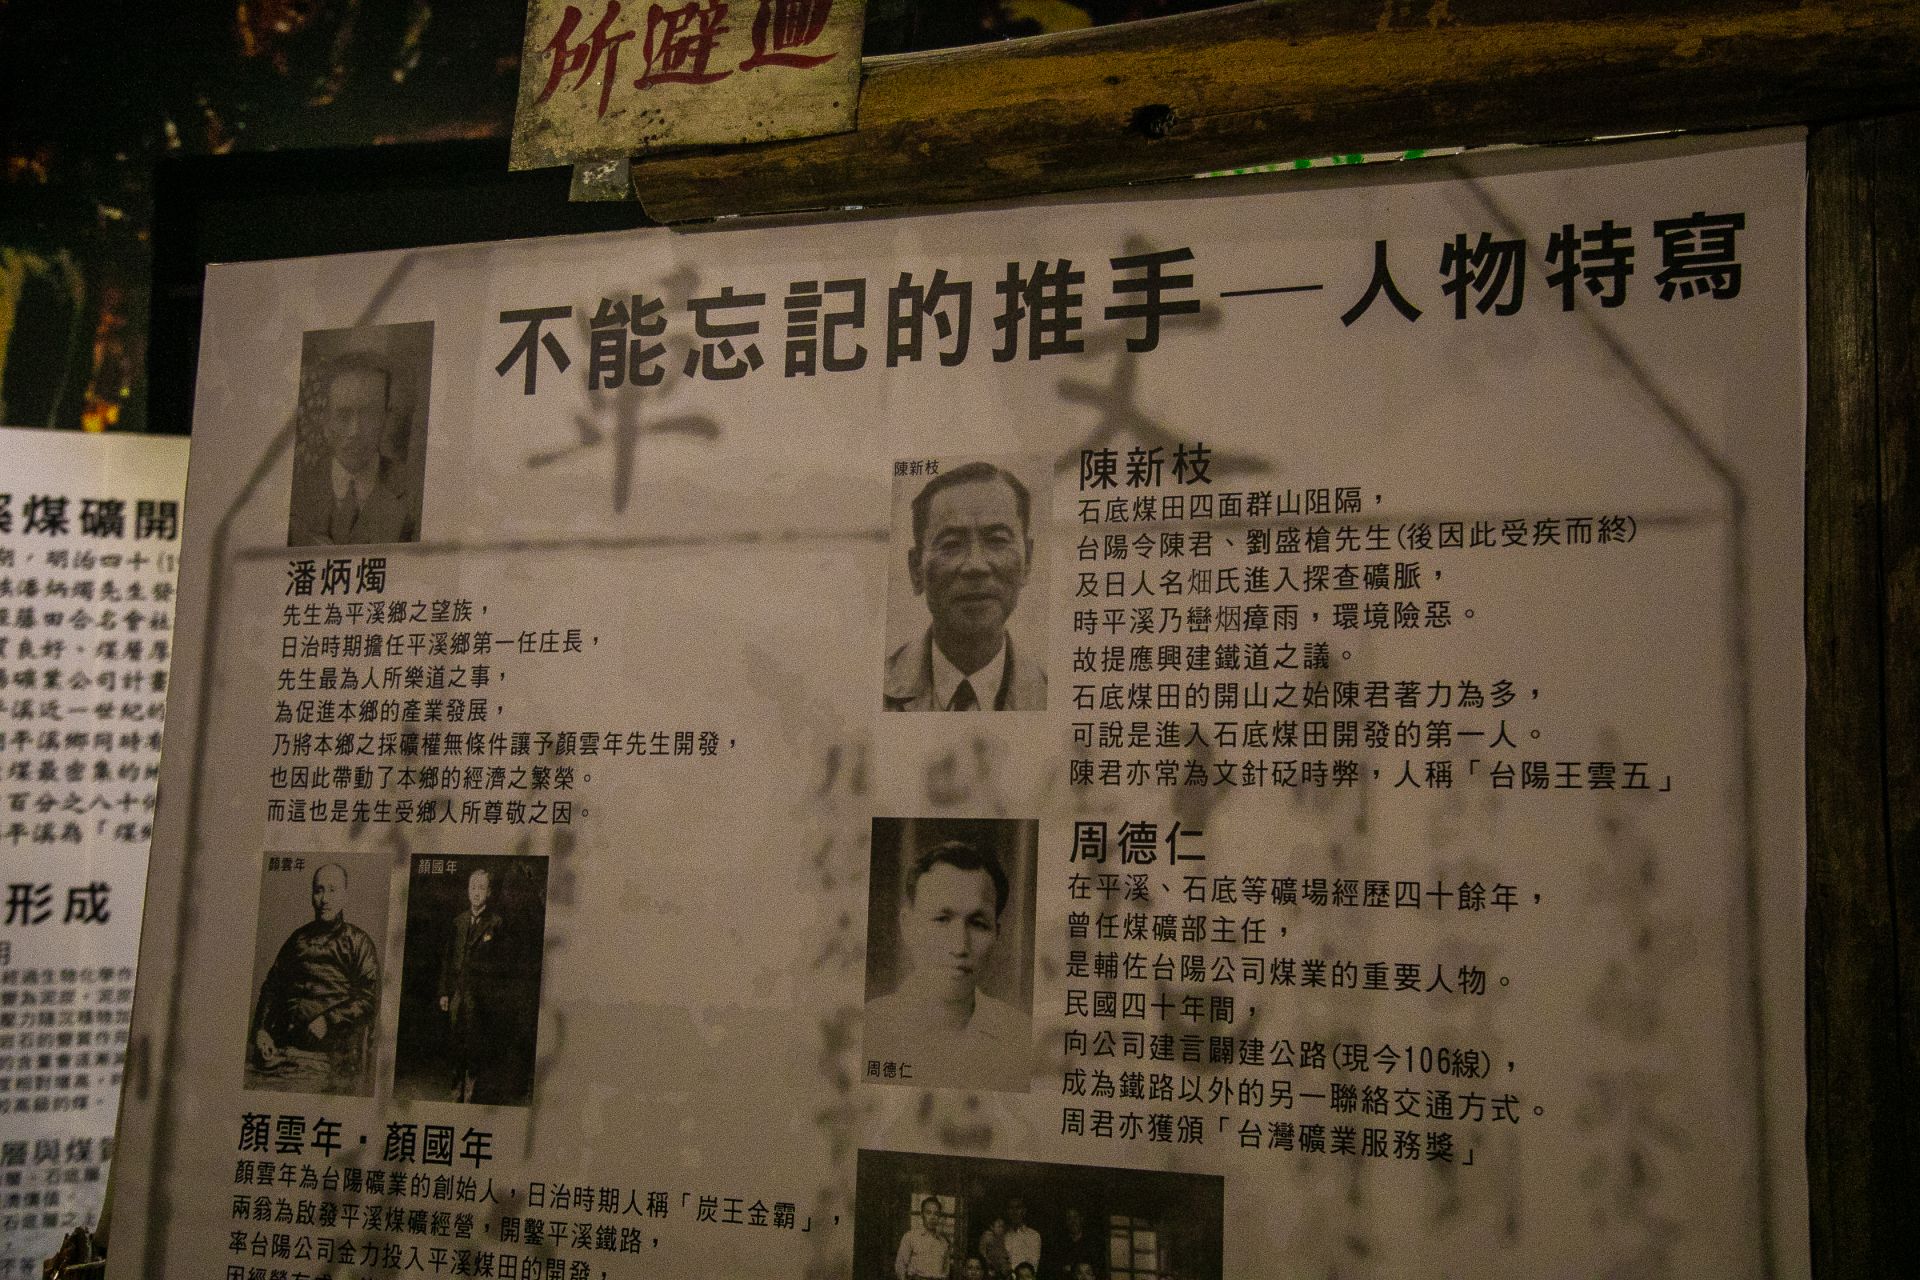 所避迴
不能忘記的推手—人物特寫
潘炳燭
先生為平溪鄉之望族，
日治時期擔任平溪鄉第一任庄長，
先生最為人所樂道之事，
為促進本鄉的產業發展，
乃將本鄉之採礦權無條件讓予顏雲年先生開發，
也因此帶動了本鄉的經濟之繁榮。
而這也是先生受鄉人所尊敬之因。
顏雲年
顏國年
顏雲年．顏國年
顏雲年為台陽礦業的創始人，日治時期人稱「炭王金霸」，
兩翁為啟發平溪煤礦經營，開鑿平溪鐵路，
率台陽公司全力投入平溪煤田的開發，
陳新枝
陳新枝
石底煤田四面群山阻隔，
台陽令陳君、劉盛槍先生(後因此受疾而終)
及日人名畑氏進入探查礦脈，
時平溪乃巒烟瘴雨，環境險惡。
故提應興建鐵道之議。
石底煤田的開山之始陳君著力為多，
可說是進入石底煤田開發的第一人。
陳君亦常為文針砭時弊，人稱「台陽王雲五」
周德仁
周德仁
在平溪、石底等礦場經歷四十餘年，
曾任煤礦部主任，
是輔佐台陽公司煤業的重要人物。
民國四十年間，
向公司建言闢建公路(現今106線)，
成為鐵路以外的另一聯絡交通方式。
周君亦獲頒「台灣礦業服務獎」
煤礦開
明治四十
潘炳燭先生發
藤田合名會社
良好、煤層厚
礦業公司計畫
平溪近一世紀的
平溪鄉同時有
煤最密集的地
百分之八十
平溪為「煤
形成
經過生物化學作
層與煤質